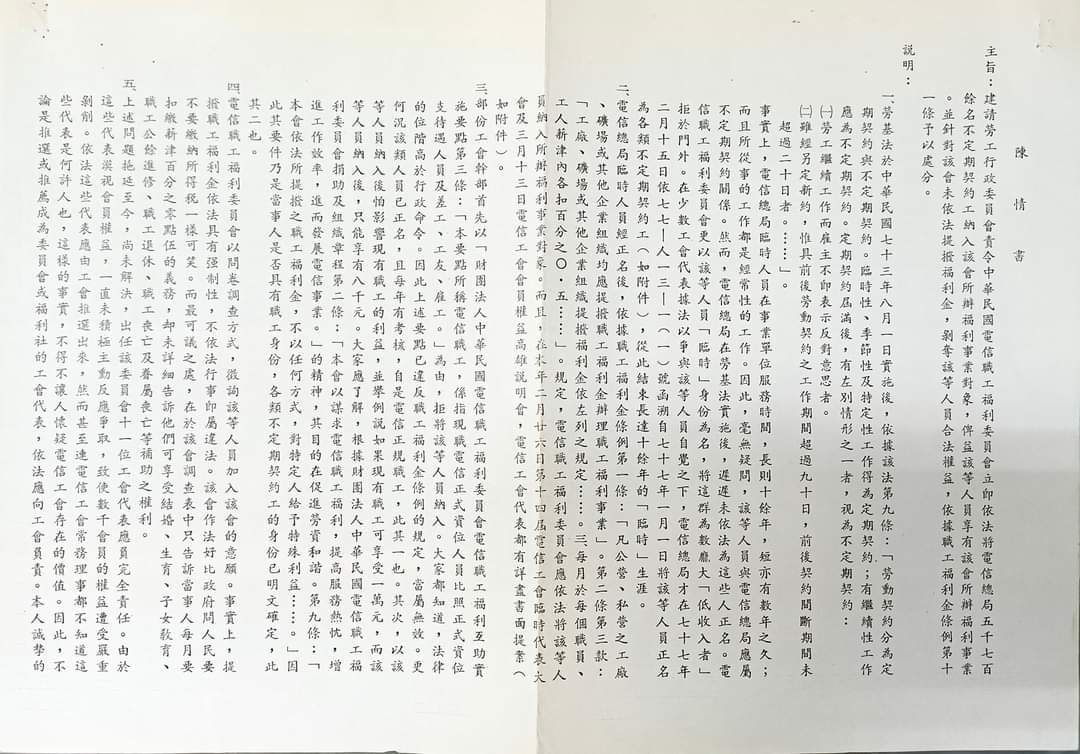 陳情書
主旨：建請勞工行政委員會責令中華民國電信職工福利委員會立即依法將電信總局五千七百
餘名不定期契約工納入該會所辦福利事業對象，俾益該等人員享有該會所辦福利事業
。並針對該會未依法提撥福利金，剝奪該等人員合法權益，依據職工福利金條例第十
一條予以處分。
說明：
一、勞基法於中華民國七十三年八月一日實施後，依據該法第九條：「勞動契約分為定
期契約與不定期契約。臨時性、季節性及特定性工作得為定期契約；有繼續性工作
應為不定期契約。定期契約屆滿後，有左列情形之一者，視為不定期契約：
㈠勞工繼續工作而雇主不即表示反對意思者。
㈡雖經另定新約，惟其前後勞動契約之工作期間超過九十日，前後契約間斷期間未
超過二十日者。……」。
事實上，電信總局臨時人員在事業單位服務時間，長則十餘年，短亦有數年之久；
而且所從事的工作都是經常性的工作。因此，毫無疑問，該等人員與電信總局應屬
不定期契約關係。然而，電信總局在勞基法實施後，遲遲未依法為這些人正名。電
信職工福利委員會更以該等人員「臨時」身份為名，將這群為數龐大「低收入者」
拒於門外。在少數工會代表據法以爭與該等人員自覺之下，電信總局才在七十七年
二月十五日依七七—人一三—一（一）號函溯自七十七年一月一日將該等人員正名
為各類不定期契約工（如附件），從此結束長達十餘年的「臨時」生涯。
二、電信總局臨時人員經正名後，依據職工福利金條例第一條：「凡公營、私營之工廠
、礦場或其他企業組織均應提撥職工福利金辦理職工福利事業」。第二條第三款：
「工廠、礦場或其他企業組織提撥福利金依左列之規定……。三每月於每個職員、
工人薪津內各扣百分之○．五……」。規定，電信職工福利委員會應依法將該等人
員納入所辦福利事業對象。而且，在本年二月廿六日第十四屆電信工會臨時代表大
會及三月十三日電信工會會員權益高雄說明會，電信工會代表都有詳盡書面提案（
如附件）。
三、部份工會幹部首先以「財團法人中華民國電信職工福利委員會電信職工福利互助實
施要點第三條：「本要點所稱電信職工，係指現職電信正式資位人員比照正式資位
支待遇人員及差工、工友、雇工。」為由，拒將該等人員納入。大家都知道，法律
的位階高於行政命令。因此上述要點已違反職工福利金條例的規定，當屬無效。更
何況該類人員已正名，且每年有考核，自是電信正規職工，此其一也。其次，以該
等人員納入後怕影響現有職工的利益，並舉例說如果現有職工可享受一萬元，而該
等人員納入後，只能享有八千元。大家應了解，根據財團法人中華民國電信職工福
利委員會捐助及組織章程第二條：「本會以謀求電信職工福利，提高服務熱忱，增
進工作效率，進而發展電信事業。」的精神，其目的在促進勞資和諧。第九條：「
本會依法所提撥之職工福利金，不以任何方式，對特定人給予特殊利益……。」因
此其要件乃是當事人是否具有職工身份，各類不定期契約工的身份已明文確定，此
其二也。
四、電信職工福利委員會以問卷調查方式，徵詢該等人員加入該會的意願。事實上，提
撥職工福利金依法具有强制性，不依法行事即屬違法。該會作法好比政府問人民要
不要繳納所得稅一樣可笑。而最可議之處，在於該會調查表中只告訴當事人每月要
扣繳薪津百分之零點伍的義務，却未詳細告訴他們可享受結婚、生育、子女教育、
職工公餘進修、職工退休、職工喪亡及眷屬喪亡等補助之權利。
五、上述問題拖延至今，尚未解決，出任該委員會十一位工會代表應負完全責任。由於
這些代表漠視會員權益，一直未積極主動反應爭取，致使數千會員的權益遭受嚴重
剝削。依法這些代表應由工會推選出來，然而甚至連電信工會常務理事都不知道這
些代表是何許人也，這樣的事實，不得不讓人懷疑電信工會存在的價值。因此，不
論是推選或推薦成為委員會或福利社的工會代表，依法應向工會負責。本人誠摯的